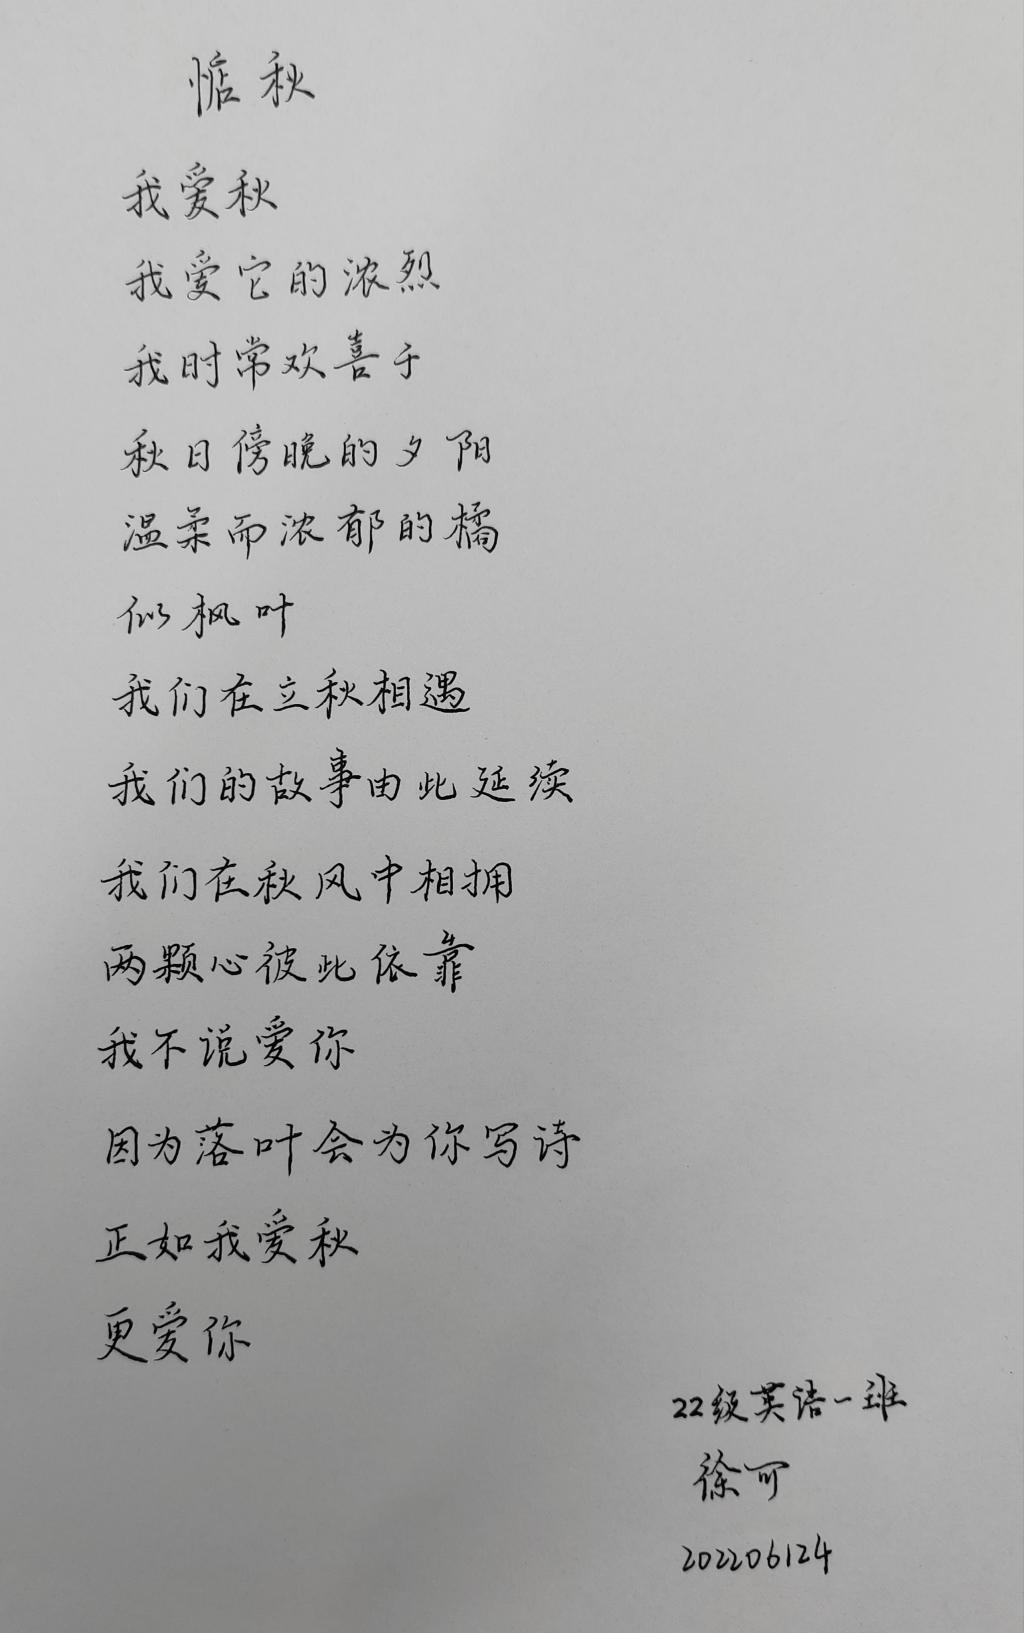 惦秋
我爱秋
我爱它的浓烈
我时常欢喜于
秋日傍晚的夕阳
温柔而浓郁的橘
似枫叶
我们在立秋相遇
我们的故事由此延续
我们在秋风中相拥
两颗心彼此依靠
我不说爱你
因为落叶会为你写诗
正如我爱秋
更爱你
22级英语一班
徐可
202206124